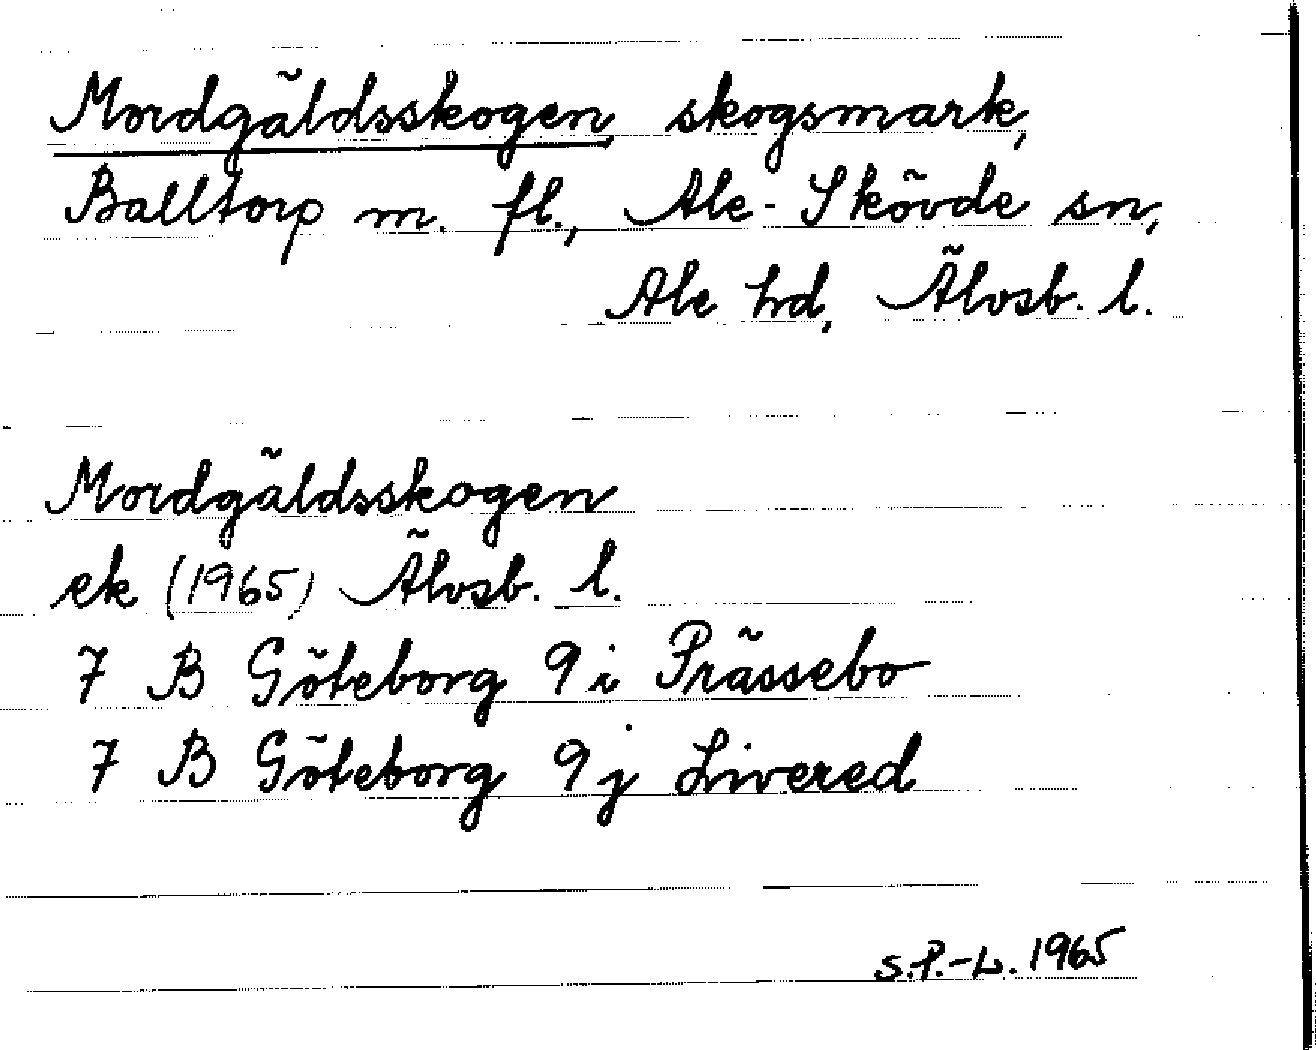 Mordgäldsskogen, skogsmark,
Balltorp m. fl., Ale-Skövde sn,
Ale hd, Älvsb. l.
Mordgäldsskogen
ek (1965) Älvsb. l.
7 B Göteborg 9 i Prässebo
7 B Göteborg 9 j Livered
S.P.-L. 1965